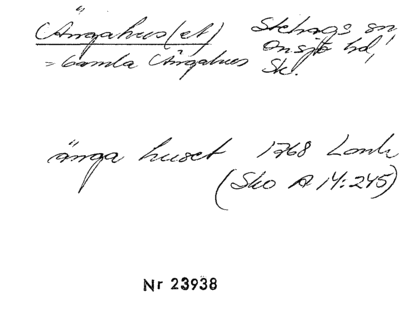 Ängahus(et) Stehags sn,
= Gamla Ängahus Onsjö hd,
Sk.
änga huset 1768 Lantm
(Sko A 14:245)
Nr 23938